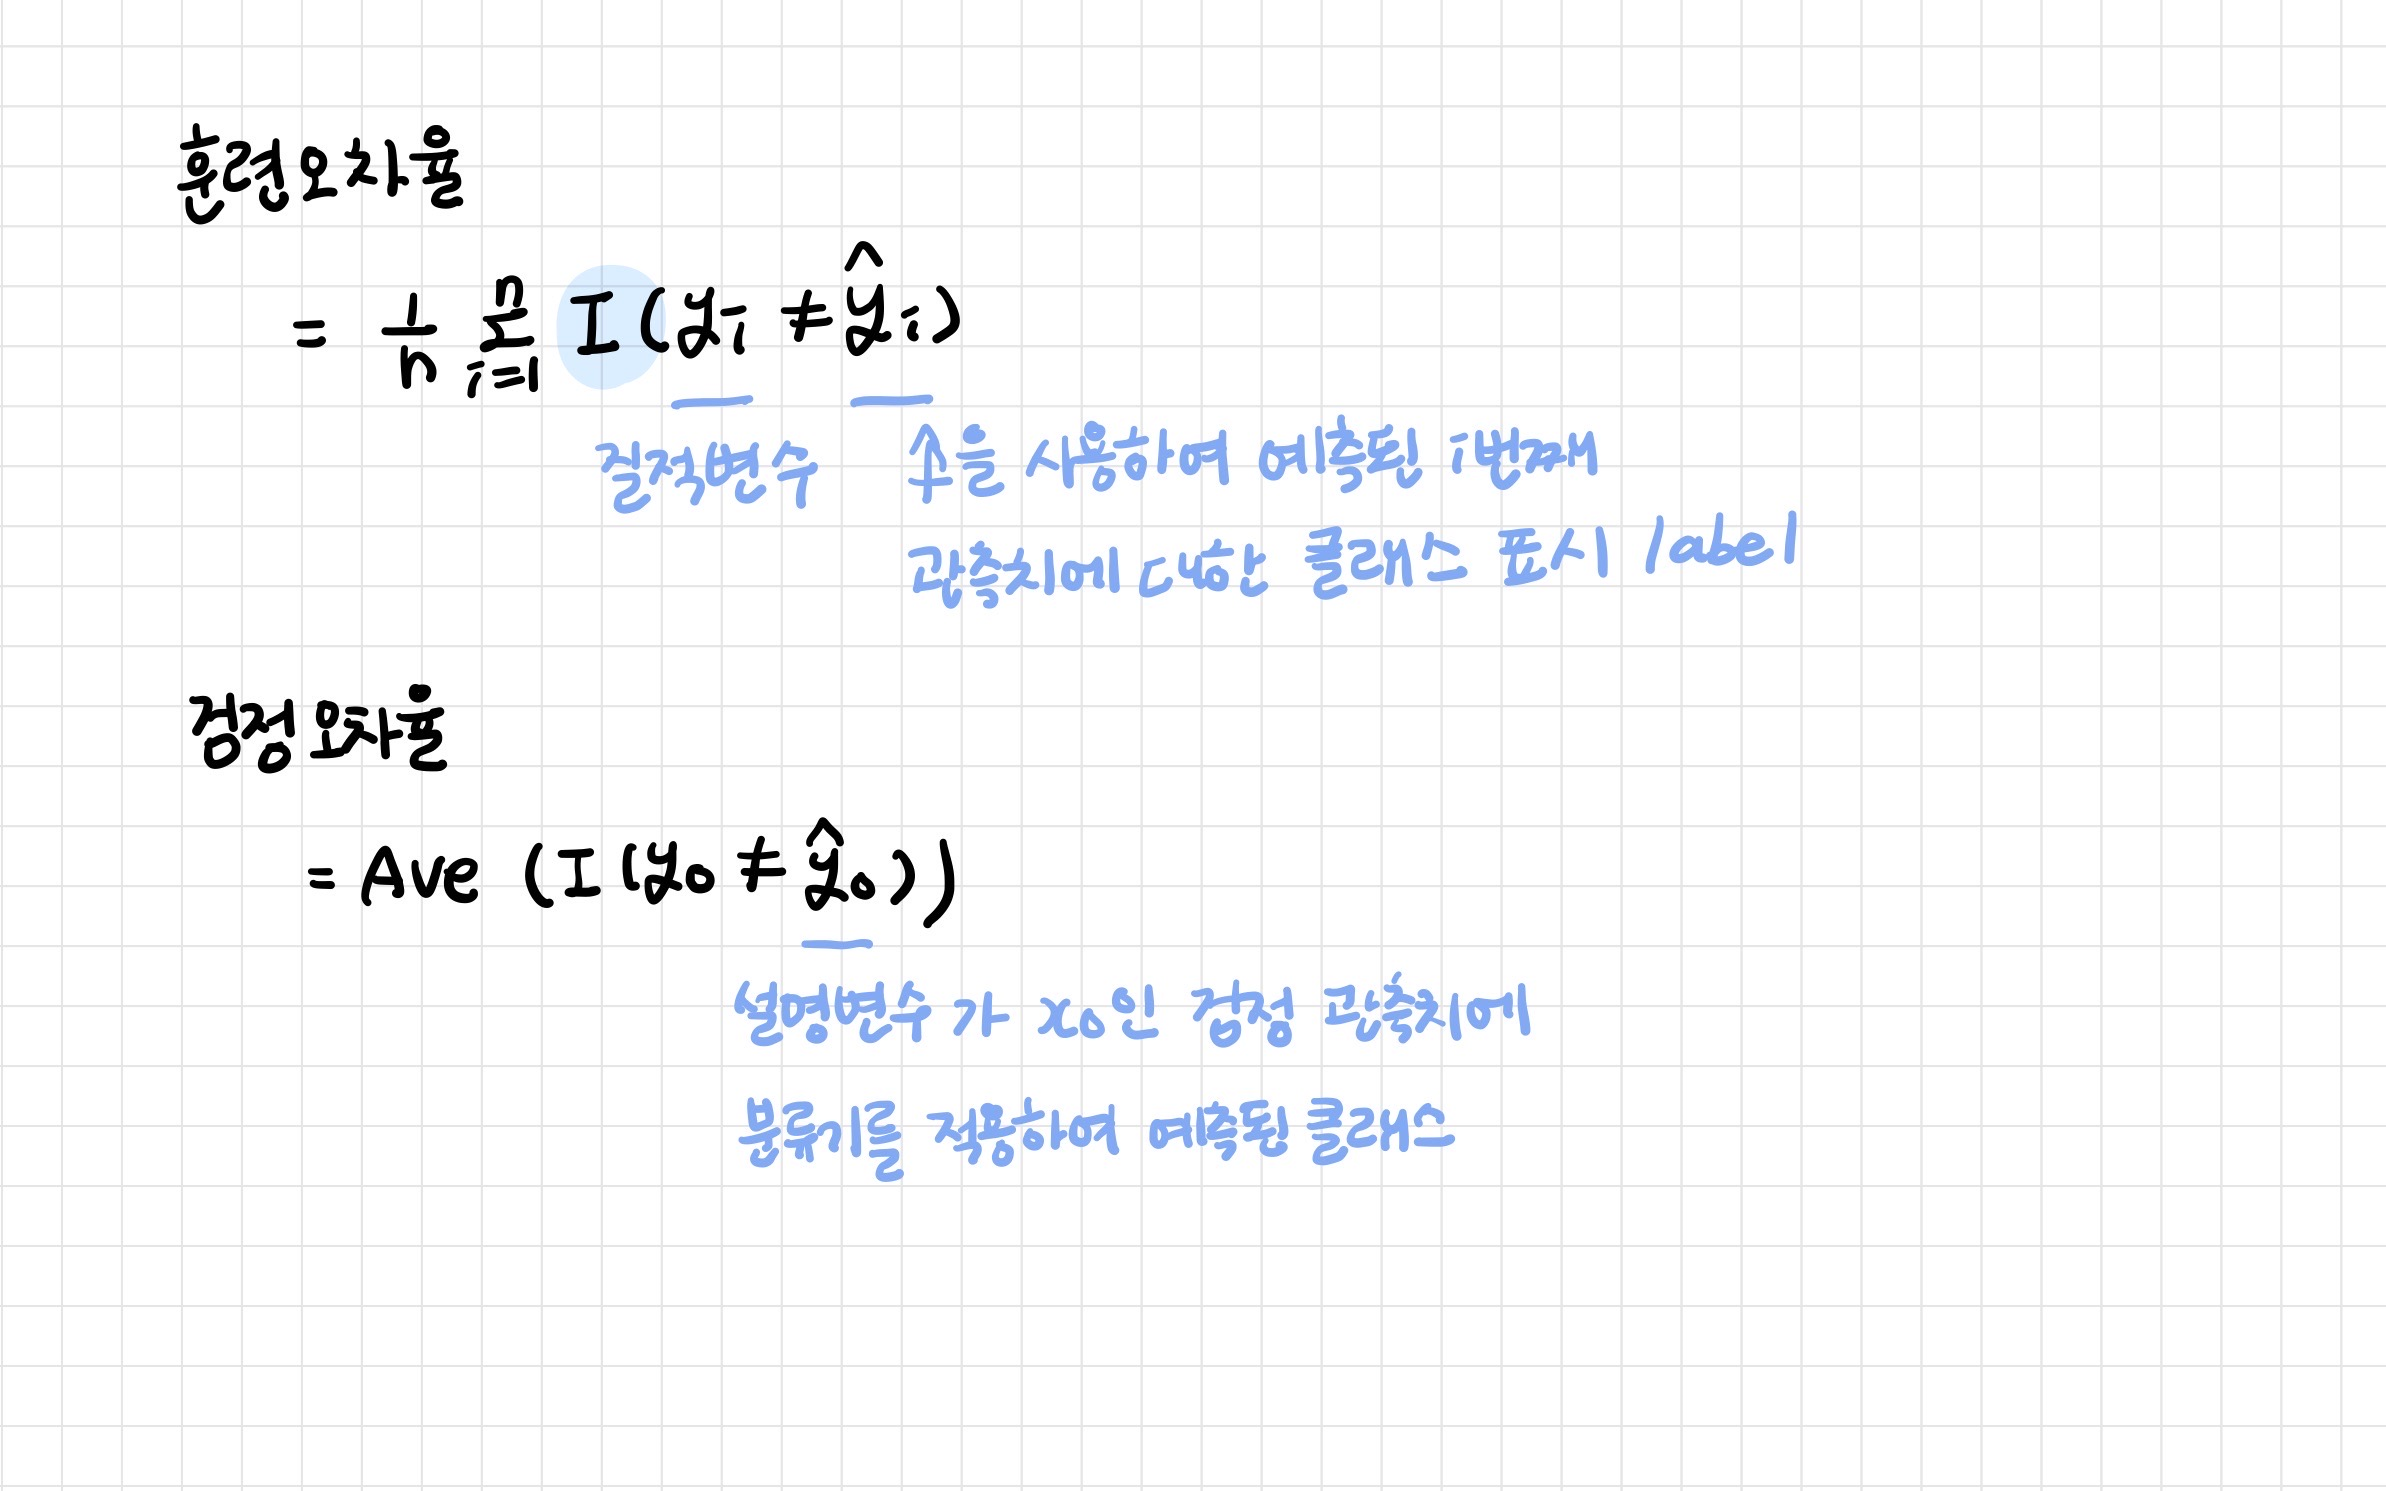 훈련오차율
= 1/n Σ_{i=1}^{n} I(y_i ≠ ŷ_i)
질적변수 f̂을 사용하여 예측된 i번째
관측치에 대한 클래스 표시 label
검정오차율
= Ave (I(y₀ ≠ ŷ₀))
설명변수가 x₀인 검정 관측치에
분류기를 적용하여 예측된 클래스